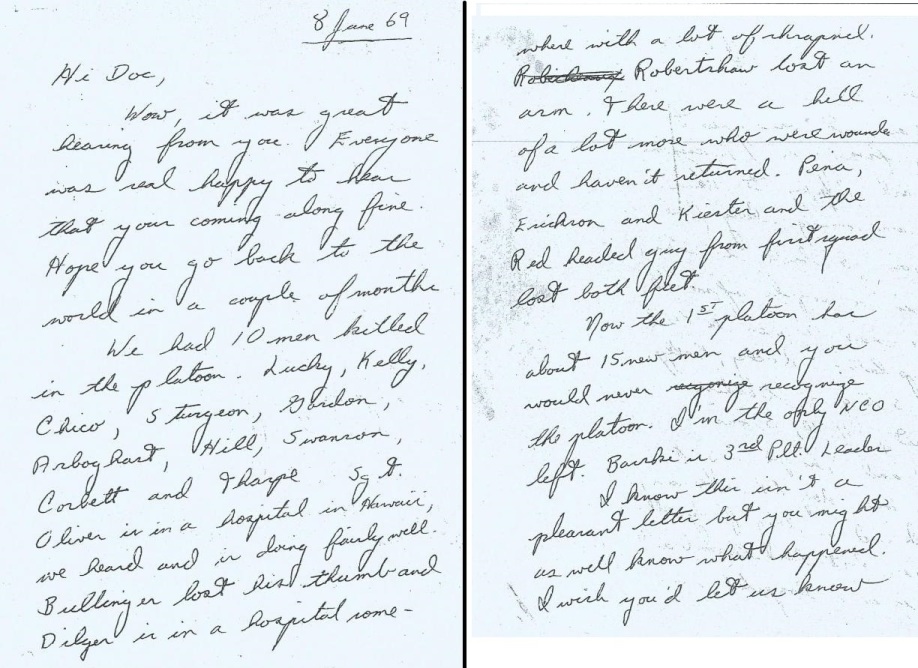 8 June 69
Hi Doc,
Wow, it was great
hearing from you. Everyone
was real happy to hear
that your coming along fine.
Hope you go back to the
world in a couple of months
We had 10 men killed
in the platoon. Lucky, Kelly,
Chico, Sturgeon, Gordon,
Arboghast, Hill, Swanson,
Corbett and Tharpe Sgt.
Oliver is in a hospital in Hawaii,
we heard and is doing fairly well.
Bullinger lost his thumb and
Dilger is in a hospital some-
where with a lot of shrapnel.
Robertshaw lost an
arm. There were a hell
of a lot more who were wounde
and haven't returned. Pena,
Erickson and Kiester and the
Red headed guy from first squad
lost both feet.
Now the 1ST platoon has
about 15 new men and you
would never recognize
the platoon. I'm the only NCO
left. is 3rd Plt. Leader
I know this isn't a
pleasant letter but you might
as well know what happened.
I wish you'd let us know